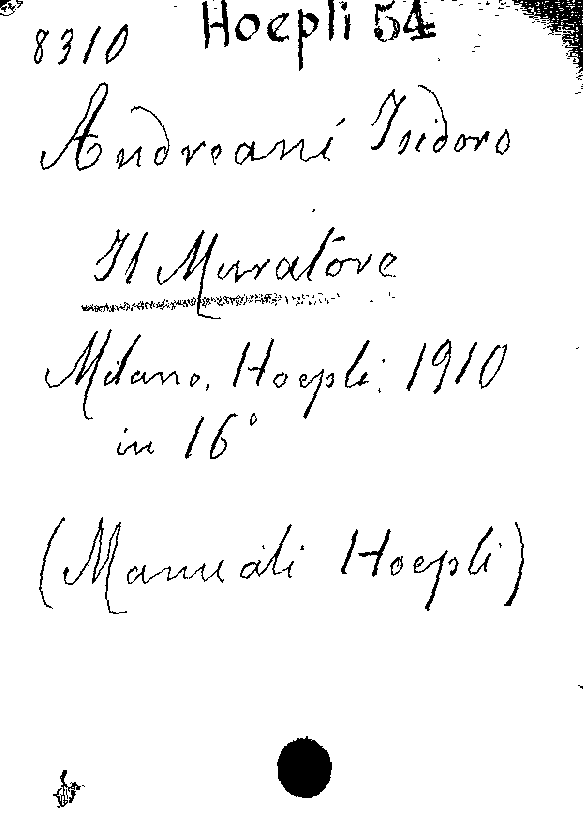 Hoepli 54
8310
Andreani Isidoro
Il Muratore
Milano, Hoepli, 1910
in 16°
(Manuali Hoepli)